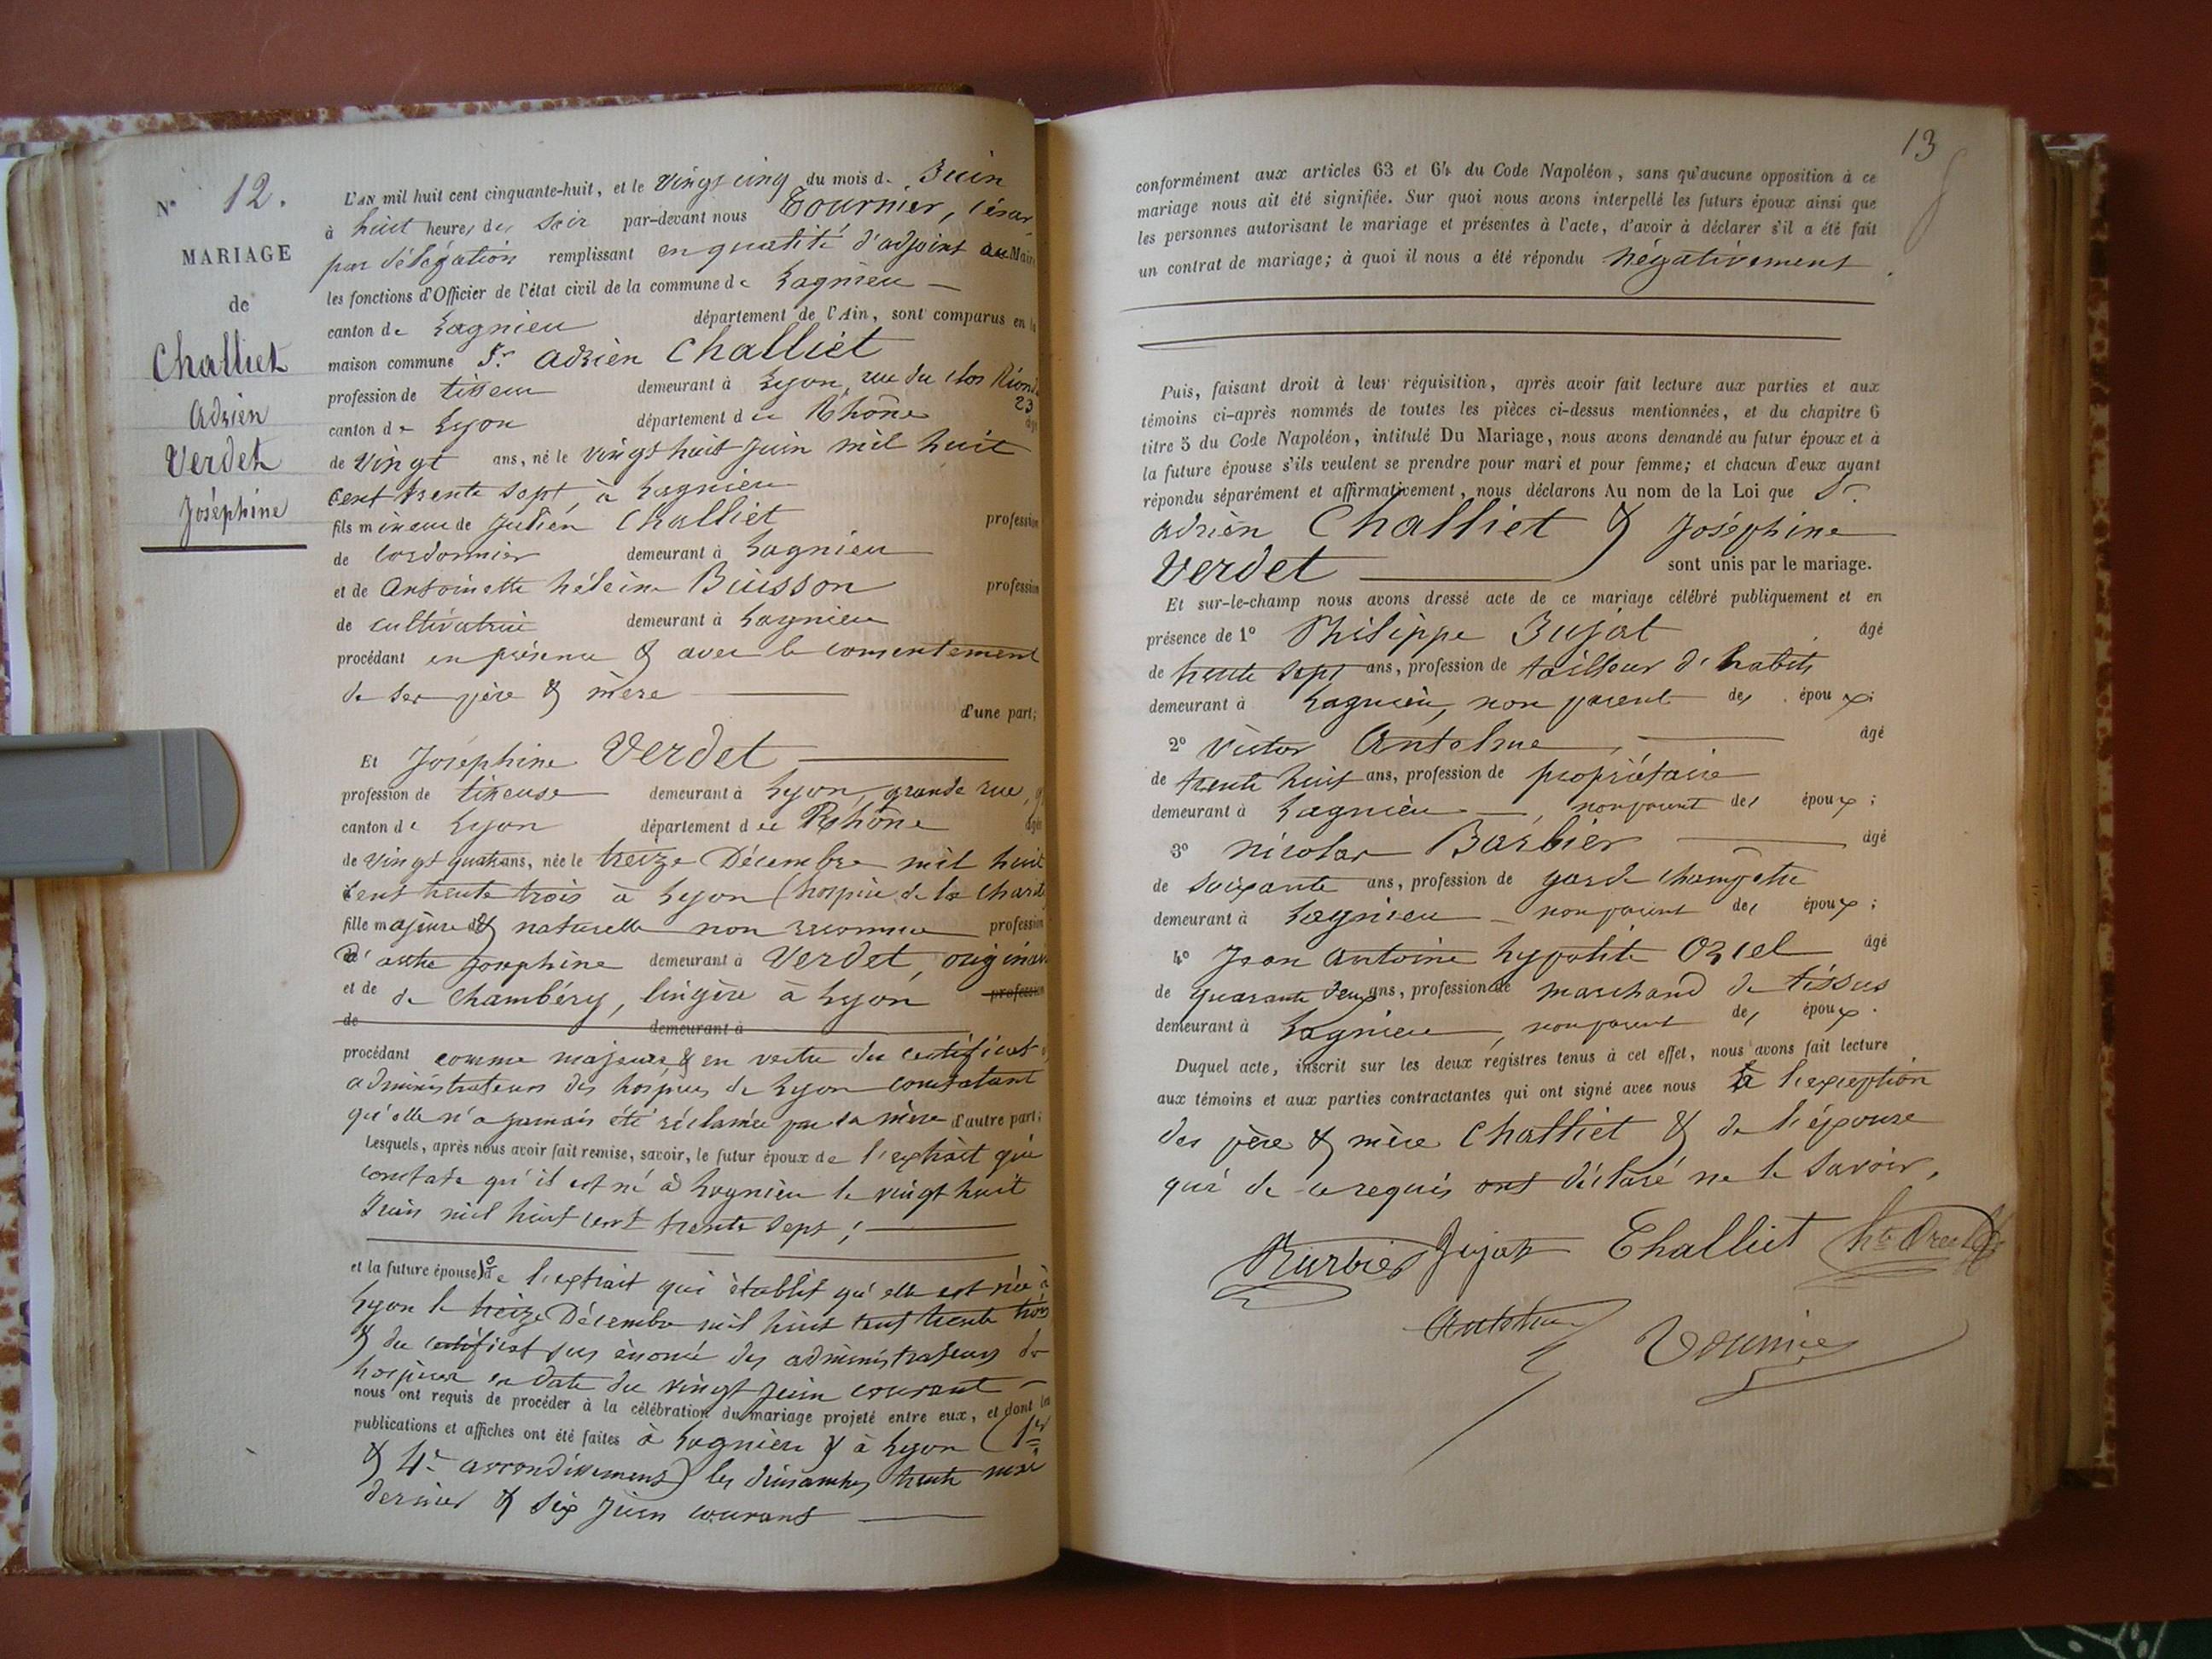 N° 12.
MARIAGE
de
Challiet
Adrien
Verdet
Joséphine
L'AN mil huit cent cinquante-huit, et le vingt cinq du mois de Juin
à huit heures du soir par-devant nous Tournier, César
par délégation remplissant en qualité d'adjoint au Maire
les fonctions d'Officier de l'état civil de la commune de Lagnieu
canton de Lagnieu département de l'Ain, sont comparus en la
maison commune Sr. Adrien Challiet
profession de tisseur demeurant à Lyon, rue du clos Riond
23
canton de Lyon département du Rhône âgé
de vingt ans, né le vingt huit Juin mil huit
cent trente sept, à Lagnieu
fils mineur de Julien Challiet profession
de cordonnier demeurant à Lagnieu
et de Antoinette hélène Buisson profession
de cultivatrice demeurant à Lagnieu
procédant en présence & avec le consentement
de ses père & mère
d'une part;
Et Joséphine Verdet
profession de tisseuse demeurant à Lyon, grande rue,
canton de Lyon département du Rhône âgée
de vingt quatre ans, née le treize Décembre mil huit
cent trente trois à Lyon (hospice de la Charité
fille majeure & naturelle non reconnue profession
d'autre Josephine demeurant à Verdet, originaire
et de de Chambéry, lingère à Lyon profession
de demeurant à
procédant comme majeure & en vertu du certificat
administrateurs des hospices de Lyon constatant
qu'elle n'a jamais été réclamée par sa mère d'autre part;
Lesquels, après nous avoir fait remise, savoir, le futur époux de l'extrait qui
constate qu'il est né à Lagnieu le vingt huit
Juin mil huit cent trente sept;
et la future épouse de l'extrait qui établit qu'elle est née à
Lyon le treize Décembre mil huit cent trente trois
& du certificat sus énoncé des administrateurs des
hospices en date du vingt Juin courant
nous ont requis de procéder à la célébration du mariage projeté entre eux, et dont les
publications et affiches ont été faites à Lagnieu & à Lyon (1er
& 4e arrondissements) les dimanches trente mai
dernier & six Juin courant
13
conformément aux articles 63 et 64 du Code Napoléon, sans qu'aucune opposition à ce
mariage nous ait été signifiée. Sur quoi nous avons interpellé les futurs époux ainsi que
les personnes autorisant le mariage et présentes à l'acte, d'avoir à déclarer s'il a été fait
un contrat de mariage; à quoi il nous a été répondu négativement.
Puis, faisant droit à leur réquisition, après avoir fait lecture aux parties et aux
témoins ci-après nommés de toutes les pièces ci-dessus mentionnées, et du chapitre 6
titre 5 du Code Napoléon, intitulé Du Mariage, nous avons demandé au futur époux et à
la future épouse s'ils veulent se prendre pour mari et pour femme; et chacun d'eux ayant
répondu séparément et affirmativement, nous déclarons Au nom de la Loi que Sr.
Adrien Challiet & Joséphine
Verdet sont unis par le mariage.
Et sur-le-champ nous avons dressé acte de ce mariage célébré publiquement et en
présence de 1° Philippe Jujat âgé
de trente sept ans, profession de tailleur d'habits
demeurant à Lagnieu, non parent des époux;
2° Victor Anthelme âgé
de trente huit ans, profession de propriétaire
demeurant à Lagnieu, non parent des époux;
3° Nicolas Barbier âgé
de soixante ans, profession de garde champêtre
demeurant à Lagnieu non parent des époux;
4° Jean Antoine hypolite Orsel âgé
de quarante deux ans, profession de marchand de tissus
demeurant à Lagnieu, non parent des époux.
Duquel acte, inscrit sur les deux registres tenus à cet effet, nous avons fait lecture
aux témoins et aux parties contractantes qui ont signé avec nous à l'exception
des père & mère Challiet & de l'épouse
qui de ce requis ont déclaré ne le savoir,
Barbier Jujat Challiet
Tournier